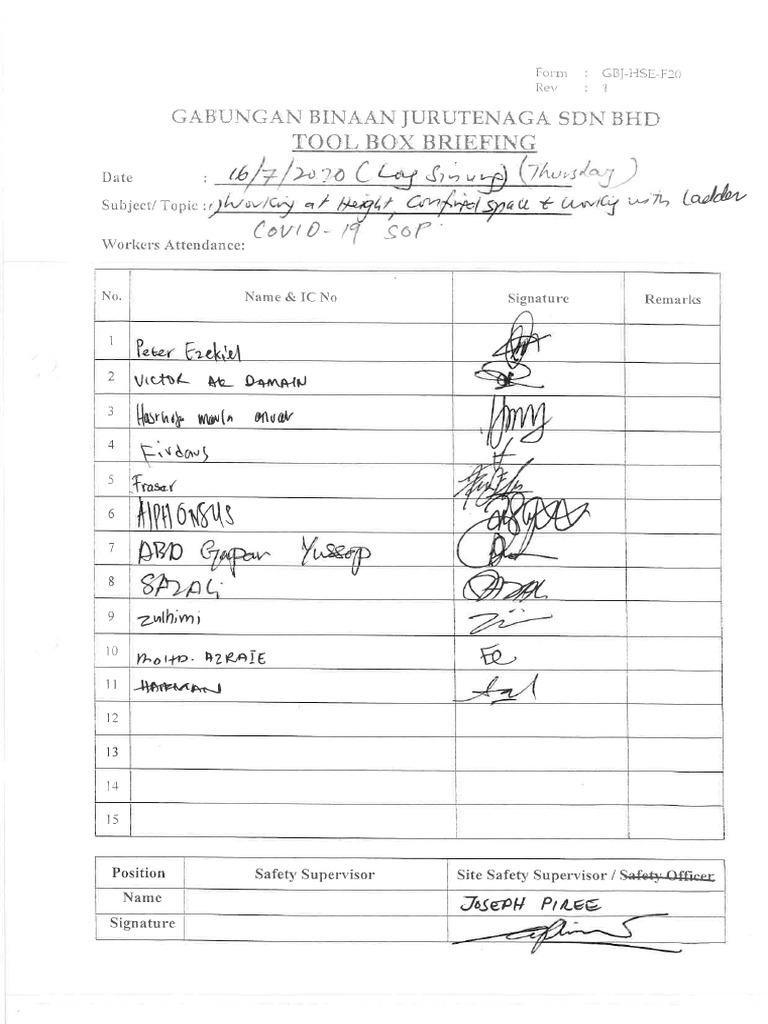 Form : GBJ-HSE-F20
Rev : 1
GABUNGAN BINAAN JURUTENAGA SDN BHD
TOOL BOX BRIEFING
Date : 16/7/2020 (Log Sinung) (Thursday)
Subject/ Topic : 1) Working at Height, Confined space & working with ladder
COVID-19 SOP
Workers Attendance:
No. Name & IC No Signature Remarks
1 Peter Ezekiel
2 VICTOR AK DAMAIN
3
4 Firdaus
5 Fraser
6 AlPHONSUS
7 ABD Gapar Yussop
8 SAZALi SAZALi
9 Zulhimi
10 MOHD. AZRAIE
11
12
13
14
15
Position Safety Supervisor Site Safety Supervisor / Safety Officer
Name JOSEPH PIREE
Signature